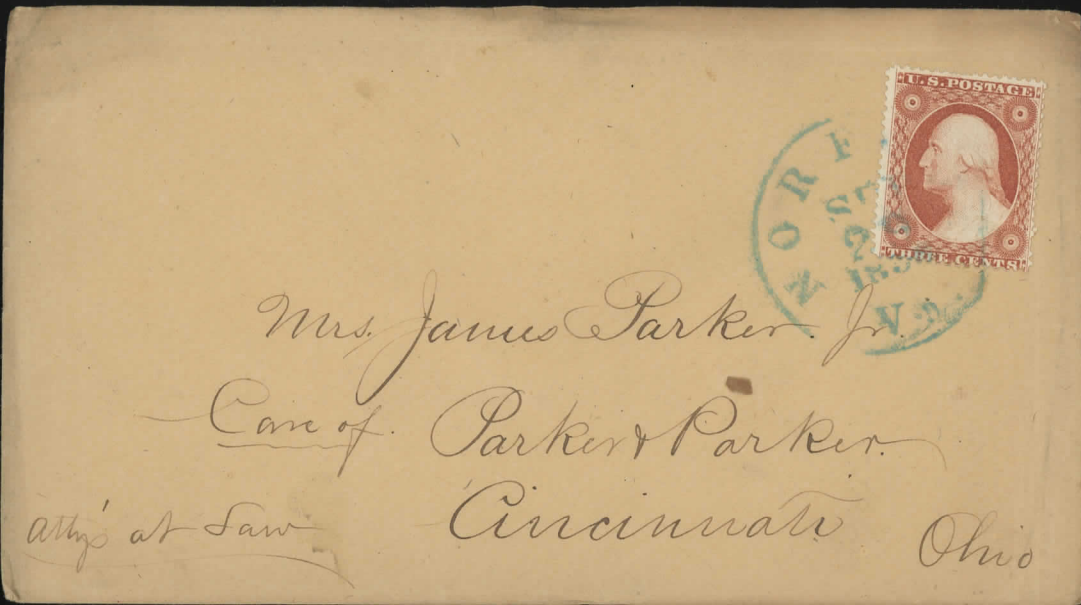 U.S. POSTAGE
THREE CENTS
NORF
2
185
Va.
Mrs. James Parker. Jr.
Care of. Parker & Parker.
Cincinnati Ohio
Atty's at Law